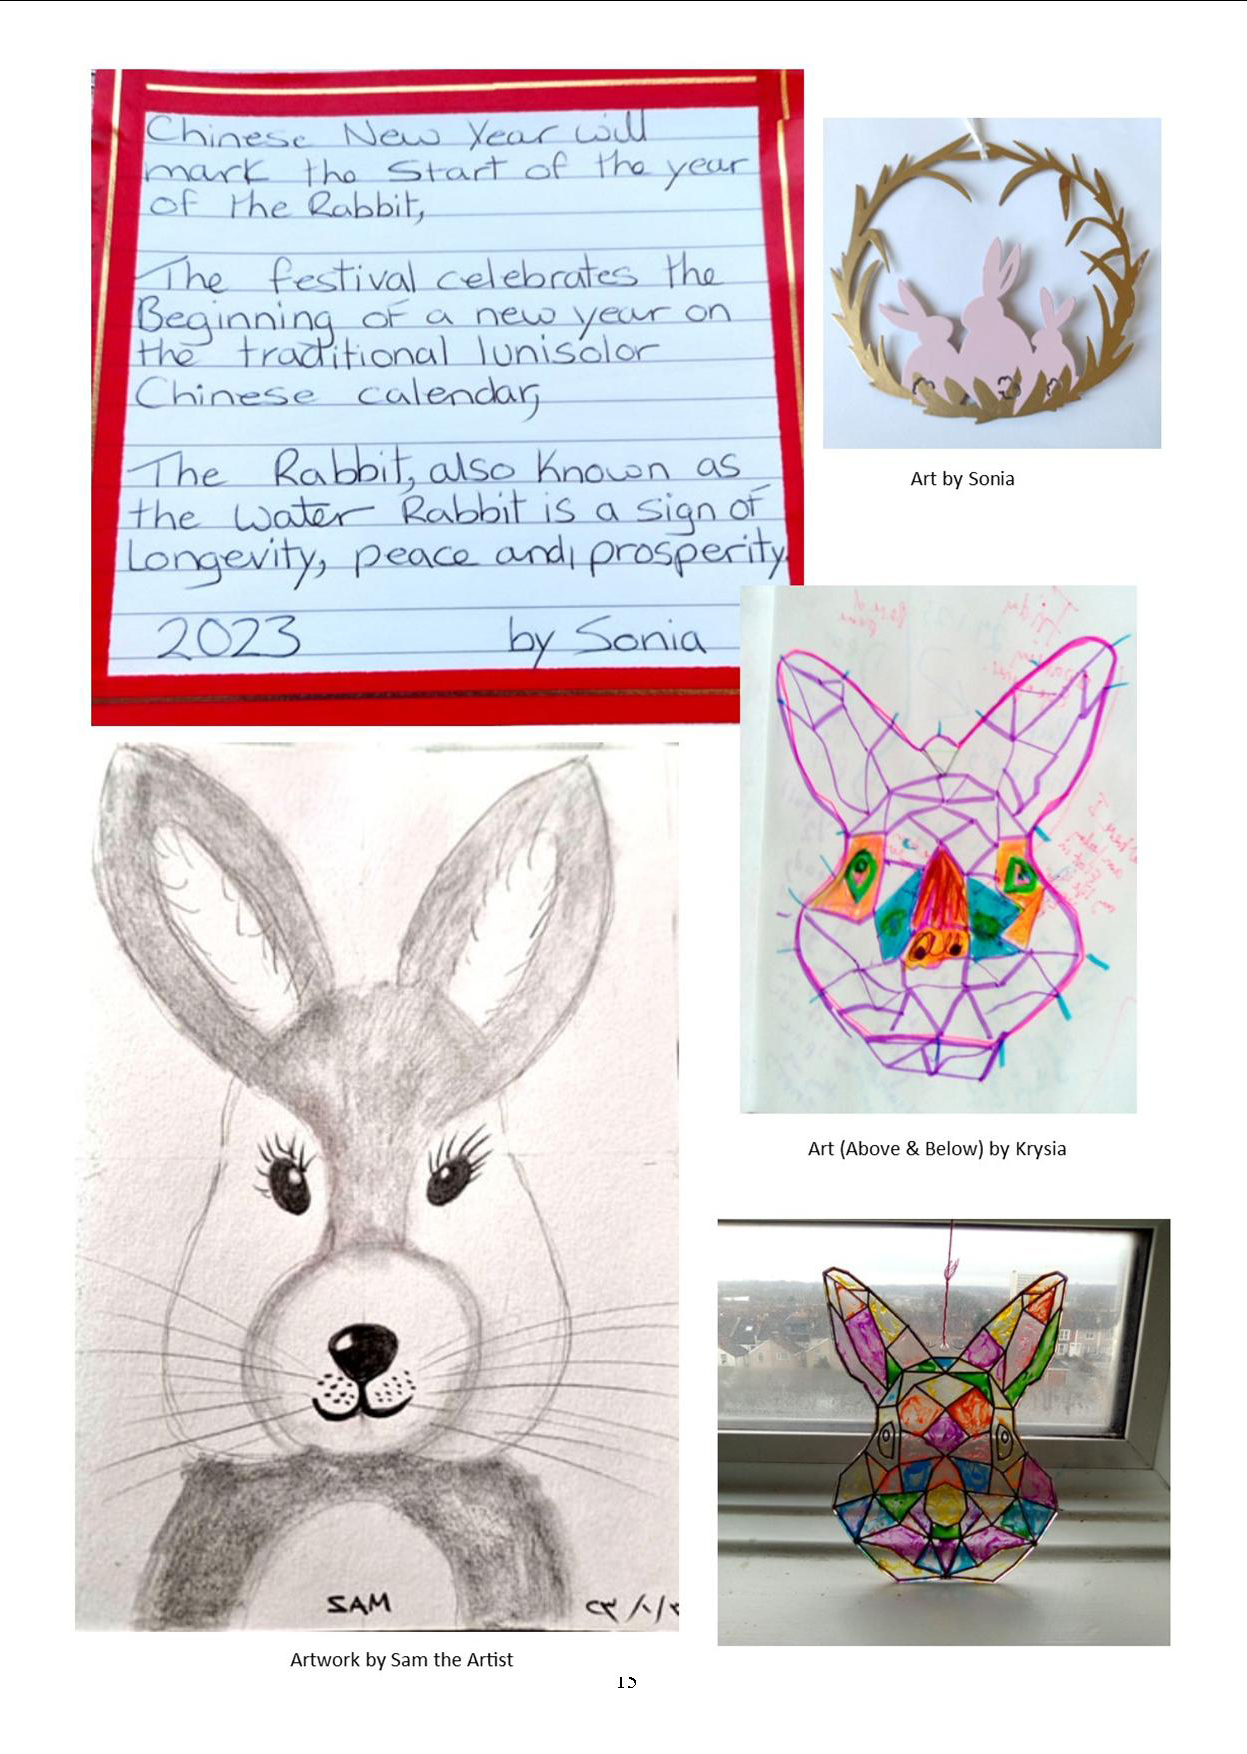 Chinese New Year will
mark the Start of the year
of the Rabbit,
The festival celebrates the
Beginning of a new year on
the traditional lunisolar
Chinese calendar,
The Rabbit, also known as
the Water Rabbit is a sign of
Longevity, peace and, prosperity.
2023 by Sonia
Art by Sonia
Art (Above & Below) by Krysia
SAM
Artwork by Sam the Artist
15